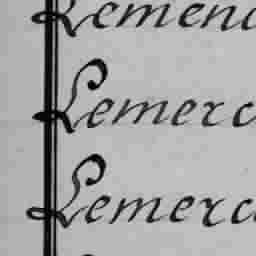 Lemenc
Lemerc
Lemerca